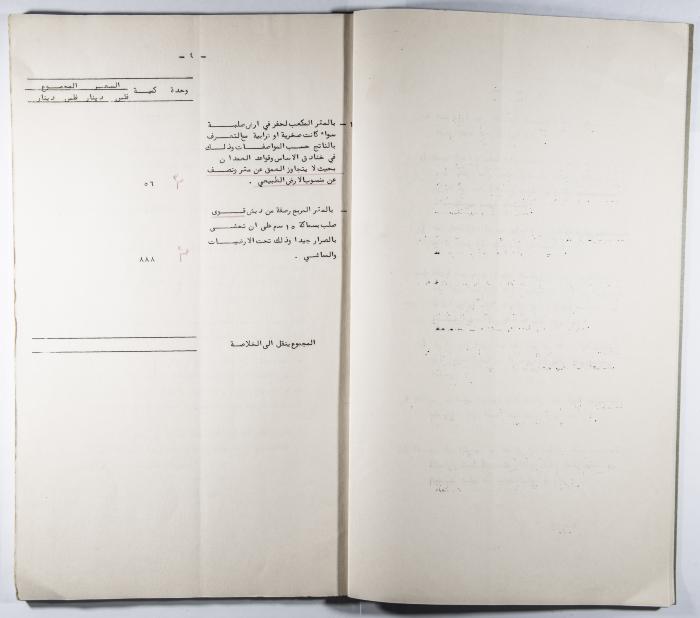 - ٤ -
السعر المجموع
وحدة كمية فلس دينار فلس دينار
١- بالمتر المكعب لحفر في ارض صلبة
سواء كانت صخرية او ترابية مع التصرف
بالناتج حسب المواصفات وذلك
في خنادق الاساس وقواعد العمدان
بحيث لا يتجاوز العمق عن متر ونصف
عن منسوب الارض الطبيعي .
م٣ ٥٦
- بالمتر المربع رصفة من دبش قوى
صلب بسماكة ١٥ سم على ان تحشى
بالصرار جيدا وذلك تحت الارضيات
والمماشي .
٨٨٨
المجموع ينقل الى الخلاصة